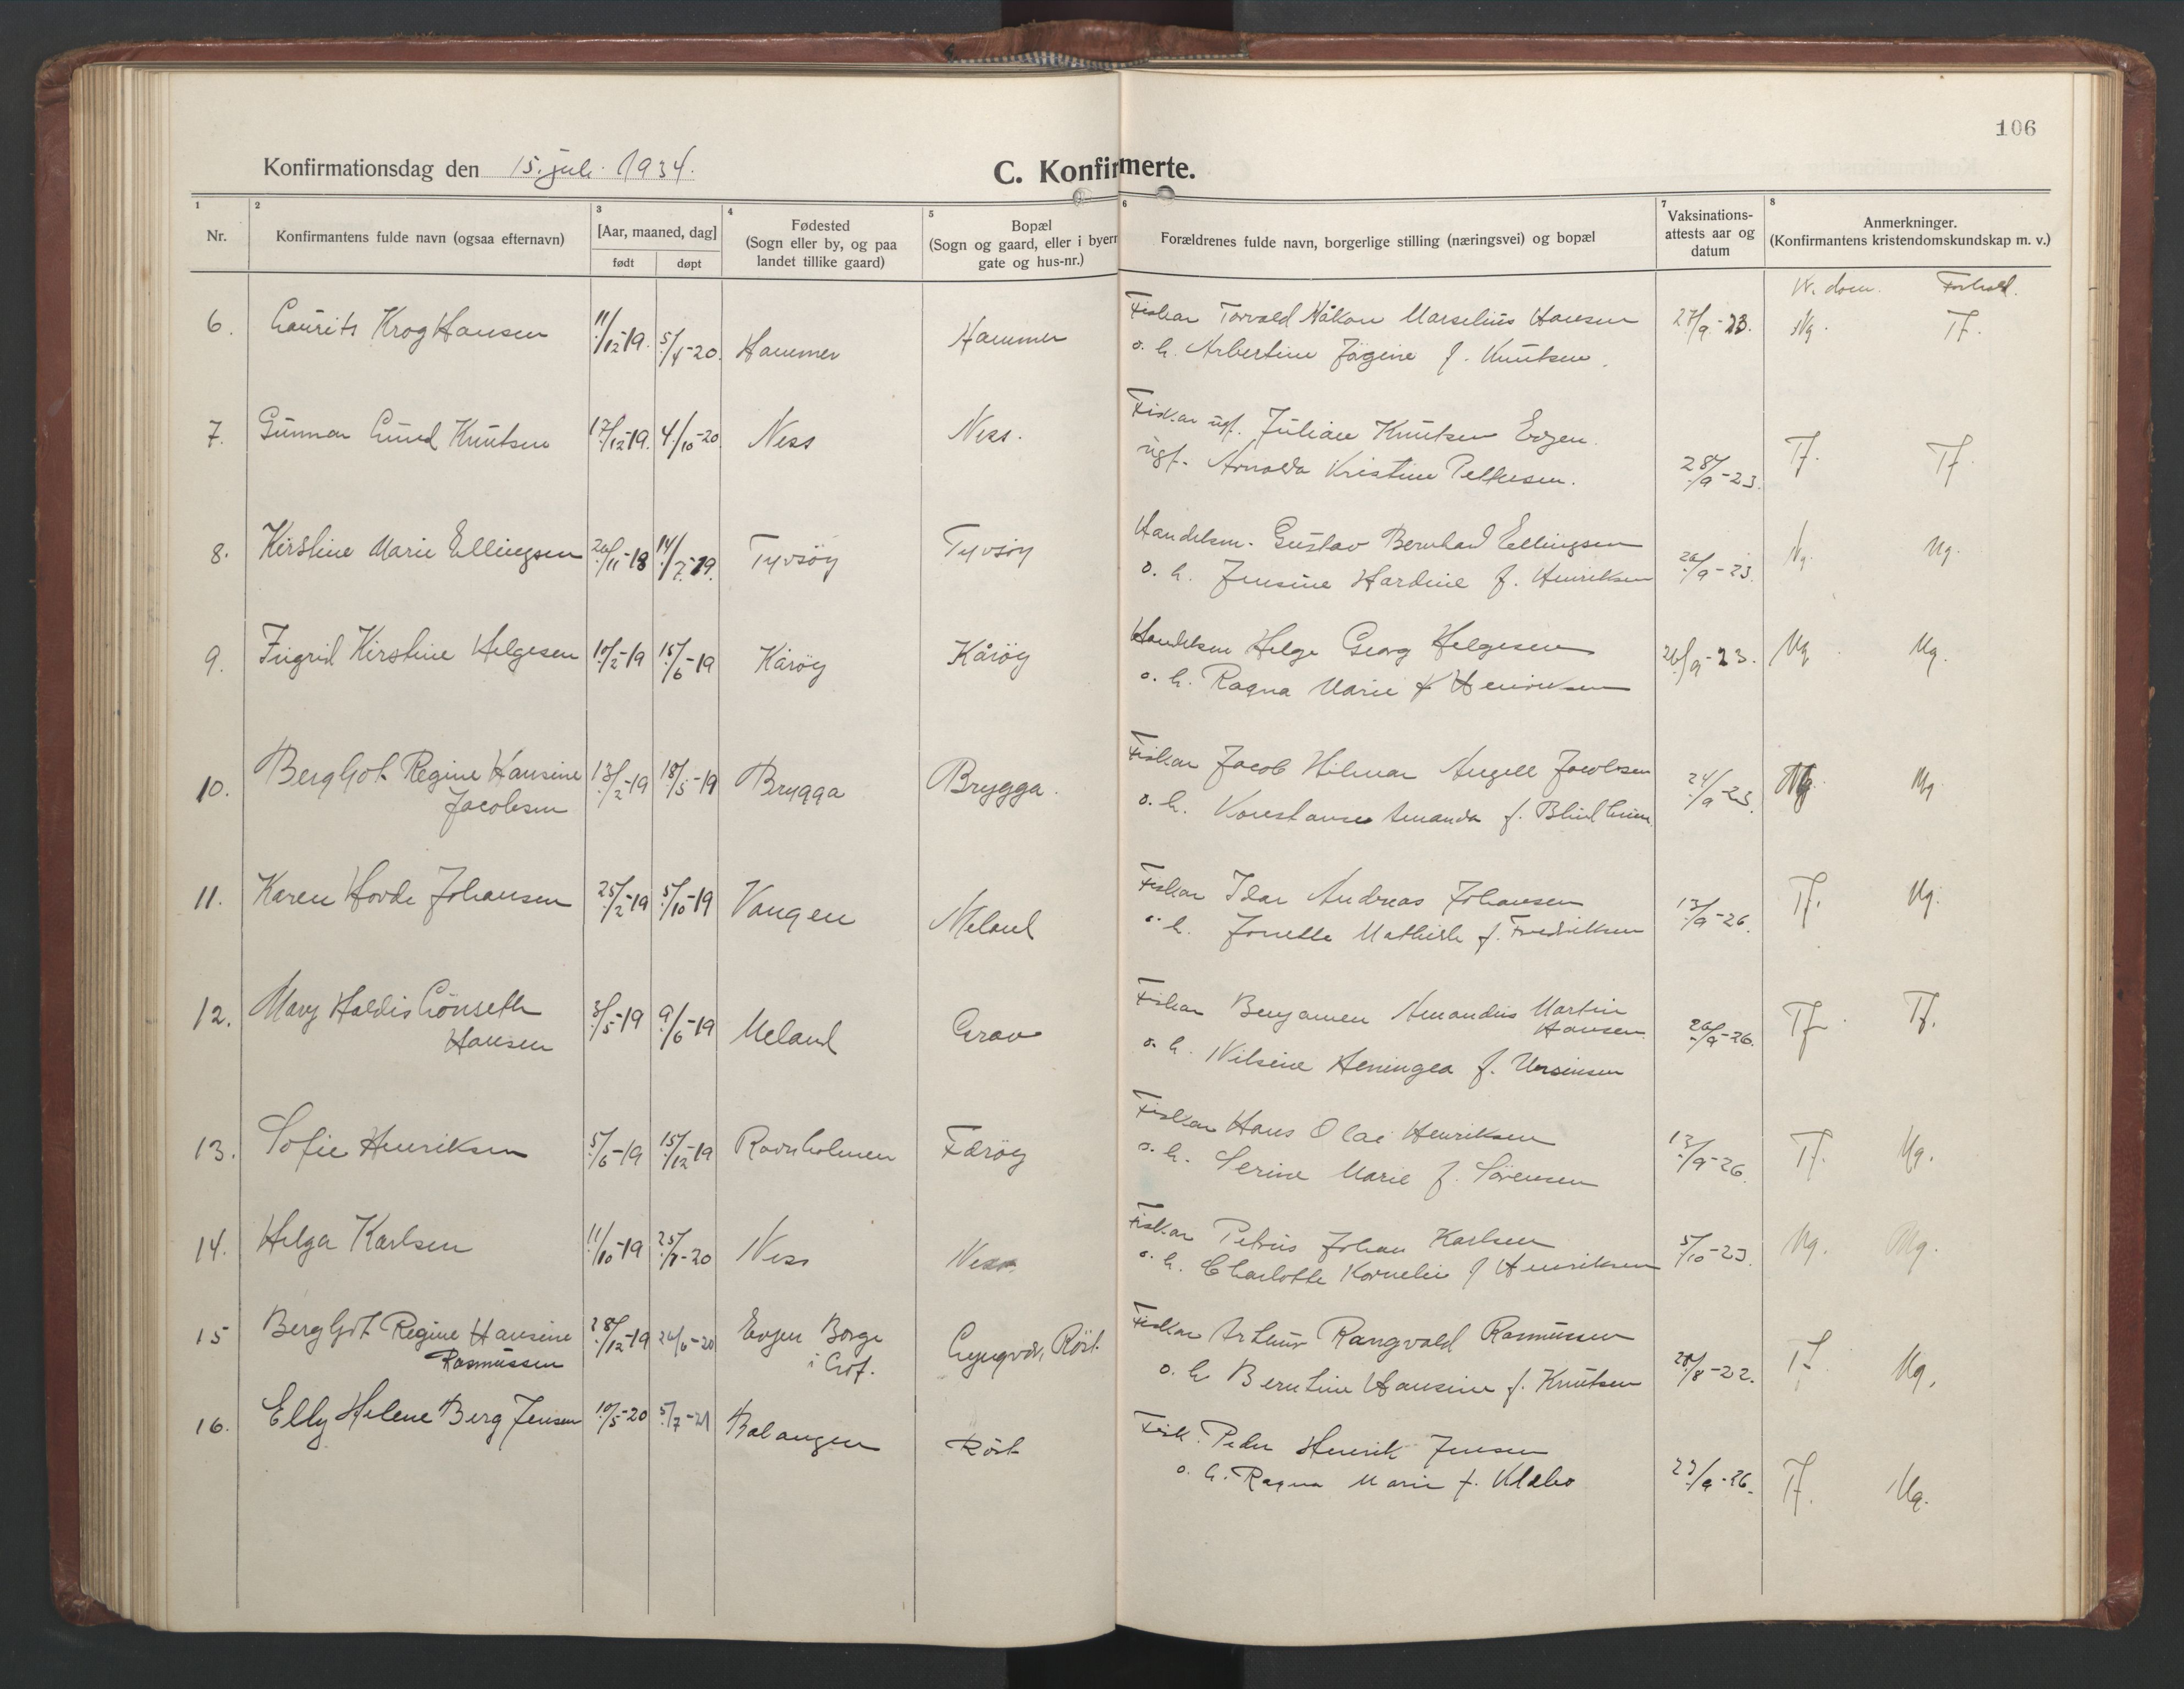 106
Konfirmationsdag den 15. juli 1934.
C. Konfirmerte.
1 2 3 4 5 6 7 8
Nr.
Konfirmantens fulde navn (ogsaa efternavn)
[Aar, maaned, dag]
født døpt
Fødested
(Sogn eller by, og paa
landet tillike gaard)
Bopæl
(Sogn og gaard, eller i byern
gate og hus-nr.)
Forældrenes fulde navn, borgerlige stilling (næringsvei) og bopæl
Vaksinations-
attests aar og
datum
Anmerkninger.
(Konfirmantens kristendomskundskap m. v.)
Forhold.
6. Laurits Krog Hansen 11/12-19. 5/4-20. Hammer Hammer Fiskar Torvald Håkon Marselius Hansen 27/9-23. Ng. Tf.
o. h. Arbertine Jögine f. Knutsen.
7. Gunnar Lund Knutsen 17/12-19. 4/10-20 Ness Ness. Fiskar ugf. Julian Knutsen Evjen.
ugf. Arnolda Kristine Pettersen. 28/9-23. Tf. Tf.
8. Kirstine Marie Ellingsen 26/11-18 14/7-19. Tyvsöy Tyvsöy Handelsm. Gustav Bernhard Ellingsen
o. h. Jensine Hardine f. Henriksen 26/9-23. Ng. Mg.
9. Ingrid Kirstine Helgesen 10/2-19 15/6-19 Kåröy Kåröy Handelsm Helge Georg Helgesen 26/9-23. Mg. Mg.
o. h. Ragna Marie f Henriksen
10. Bergljot Regine Hansine 13/2-19 18/5-19 Brygga Brygga. Fiskar Jacob Hilmar Angell Jacobsen 24/9-23. Mg. Mg
Jacobsen
o. h. Konstanse Amanda f. Blindheim.
11. Karen Hovde Johansen 25/2-19 5/10-19 Vangen Meland Fiskar Idar Andreas Johansen 13/9-26. Tf. Mg.
o. h. Jonette Mathilde f. Fredriksen
12. Mary Haldis Lönseth 3/5-19 9/6-19 Meland Grav Fiskar Benjamen Amandus Martin
Hansen Hansen. 26/9-26. Tf. Tf.
o. h. Nilsine Heningea f. Ursinsen
13. Sofie Henriksen 5/6-19 15/12-19 Ravnholmen Færöy Fiskar Hans Olai Henriksen 13/9-26. Tf. Mg.
o. h. Serine Marie f. Sörensen
14. Helga Karlsen 11/10-19 25/7-20 Ness Ness Fiskar Petrus Johan Karlsen 5/10-23. Mg. Mg.
o. h. Charlotte Kornelie f Henriksen
15 Bergljot Regine Hansine 28/12-19 26/6-20 Evjen Borge Lyngvær, Röst. Fiskar Arthur Rangvald Rasmussen
Rasmussen i Lof.
o. h Berntine Hansine f. Knutsen 28/8-22. Tf. Mg.
16. Elly Helene Berg Jensen 10/5-20 5/7-21 Balangen Röst Fisk. Peder Henrik Jensen
o. h. Ragna Marie f. Klæbo 23/9-26. Tf. Mg.